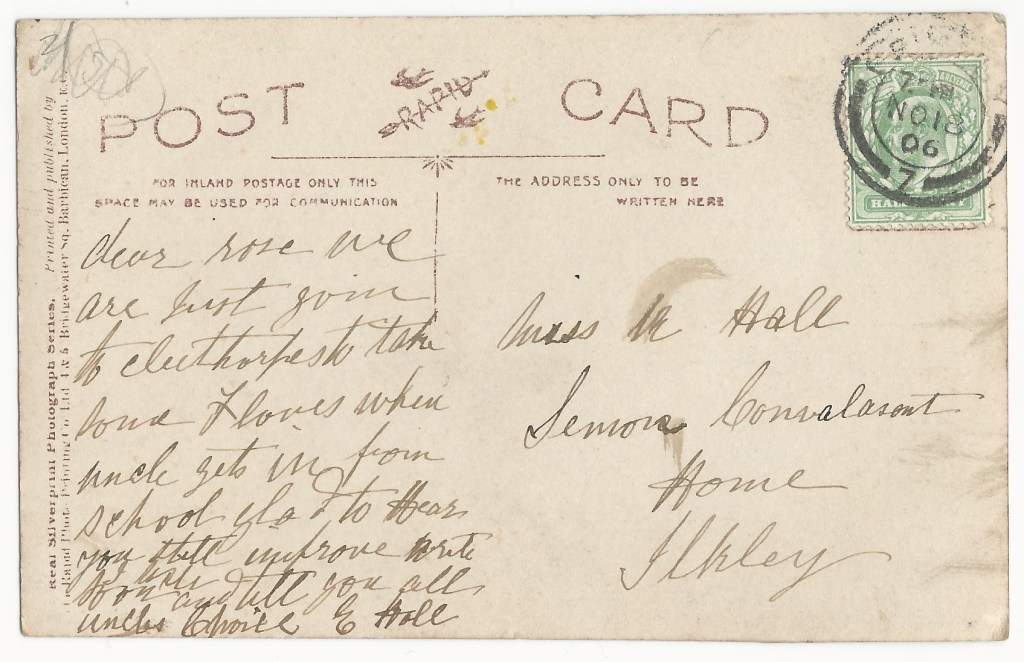 POST CARD
RAPID
FOR INLAND POSTAGE ONLY THIS
SPACE MAY BE USED FOR COMMUNICATION
THE ADDRESS ONLY TO BE
WRITTEN HERE
7 PM
NO 18
06
7
HALF
Real Silverprint Photograph Series. Printed and published by
Rapid Photo Printing Co Ltd 4 & 5 Bridgewater Sq, Barbican, London, E.C.
dear rose we
are Just goin
to cleethorpes to take
when
uncle gets in from
school glad to Hear
you still improve write
soon and till you all
uncles Choice E Hall
Miss R Hall
Semon Convalasont
Home
Ilkley